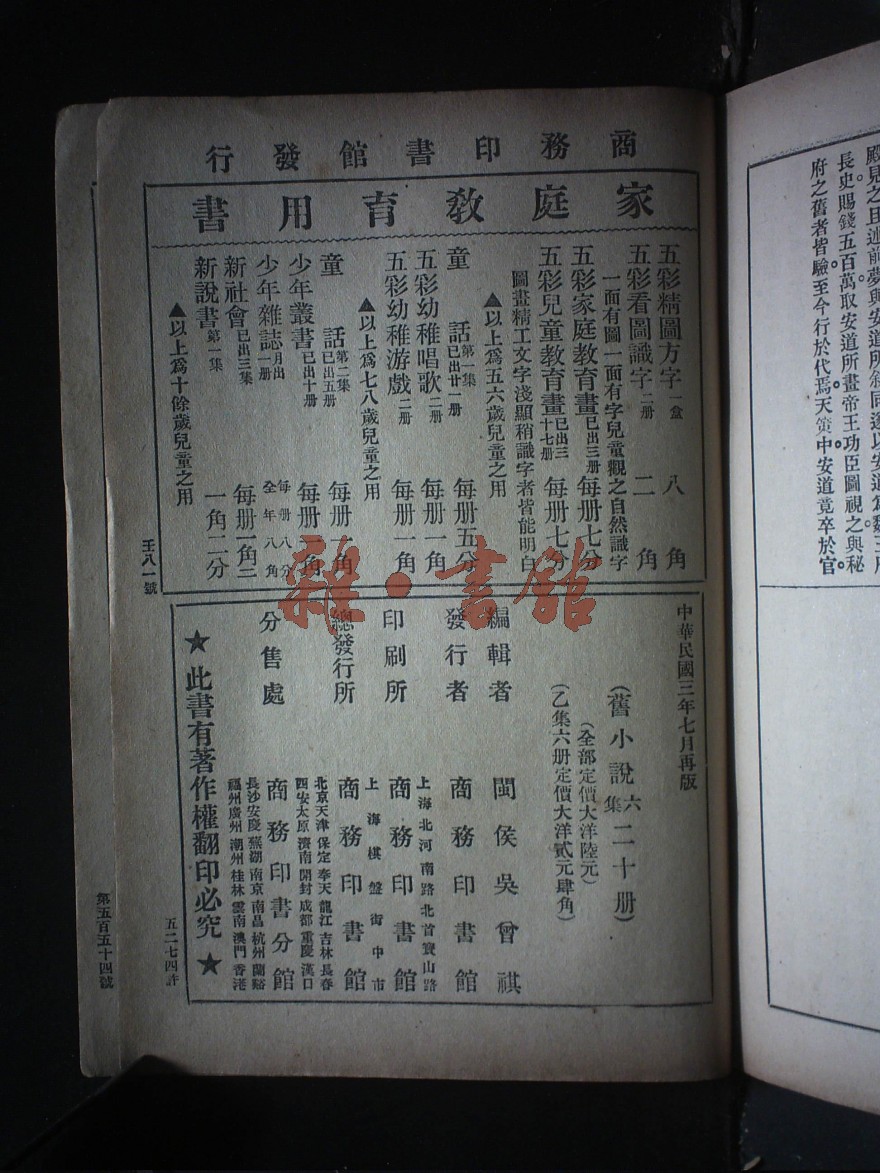 殿見之且述前夢與安道所敘同遂以安道爲魏王府
長史賜錢五百萬取安道所畫帝王功臣圖視之與秘
府之舊者皆驗至今行於代焉天策中安道竟卒於官
商務印書館發行
家庭教育用書
五彩精圖方字 一盒 八角
五彩看圖識字 二册 二角
一面有圖一面有字兒童觀之自然識字
五彩家庭教育畫 已出三册 每册七分
五彩兒童教育畫 已出三十七册 每册七分
圖畫精工文字淺顯稍識字者皆能明白
▲以上爲五六歲兒童之用
童話 第一集已出廿一册 每册五分
五彩幼稚唱歌 二册 每册一角
五彩幼稚游戲 二册 每册一角
▲以上爲七八歲兒童之用
童話 第二集已出五册 每册一角
少年叢書 已出十册 每册一角
少年雜誌 月出一册 每册八分全年八角
新社會 已出三集 每册一角二
新說書 第一集 一角二分
▲以上爲十餘歲兒童之用
壬八一號
中華民國三年七月再版
(舊小說六集二十册)
(全部定價大洋陸元)
(乙集六册定價大洋貳元肆角)
編輯者 閩侯吳曾祺
發行者 商務印書館
上海北河南路北首寶山路
印刷所 商務印書館
上海棋盤街中市
總發行所 商務印書館
北京天津保定奉天龍江吉林長春
西安太原濟南開封成都重慶漢口
分售處 商務印書分館
長沙安慶蕪湖南京南昌杭州蘭谿
福州廣州潮州桂林雲南澳門香港
★此書有著作權翻印必究★
五二七四許
第五百五十四號
雜·書館